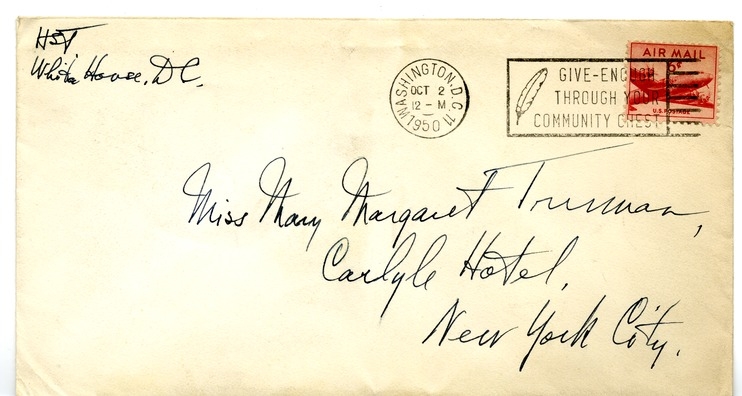 HST
White House, D.C.
WASHINGTON, D.C. 11
OCT 2
12 - M
1950
GIVE-ENOUGH
THROUGH YOUR
COMMUNITY CHEST
AIR MAIL
6¢
U.S. POSTAGE
Miss Mary Margaret Truman,
Carlyle Hotel,
New York City.